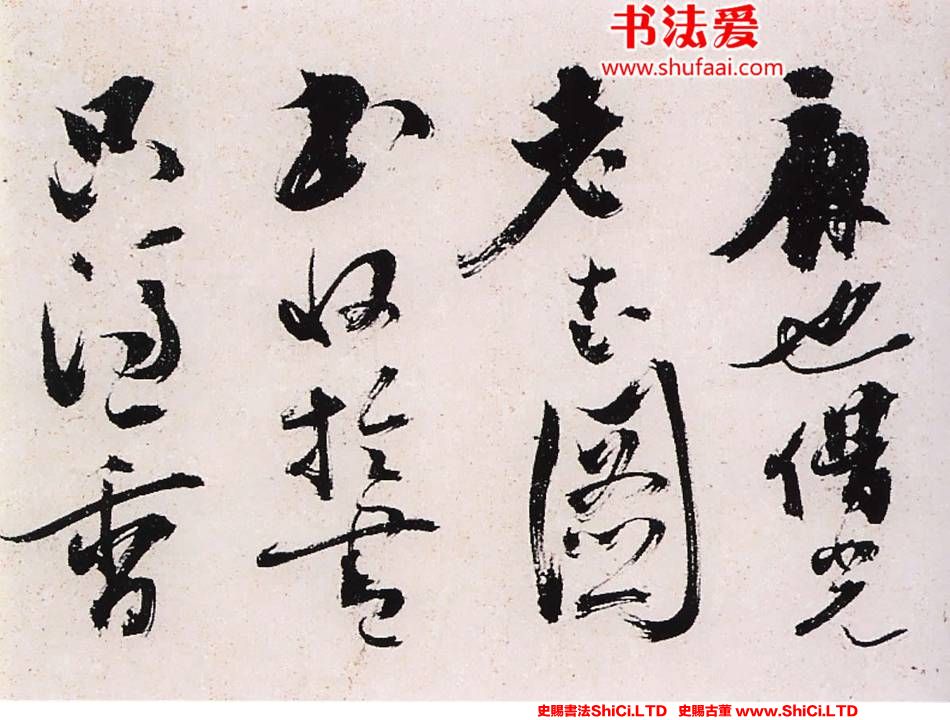 书法爱
www.shufaai.com
也
老去圖
書收拾盡
只憑香
史賜書法ShiCi.LTD 史賜古董 www.ShiCi.LTD